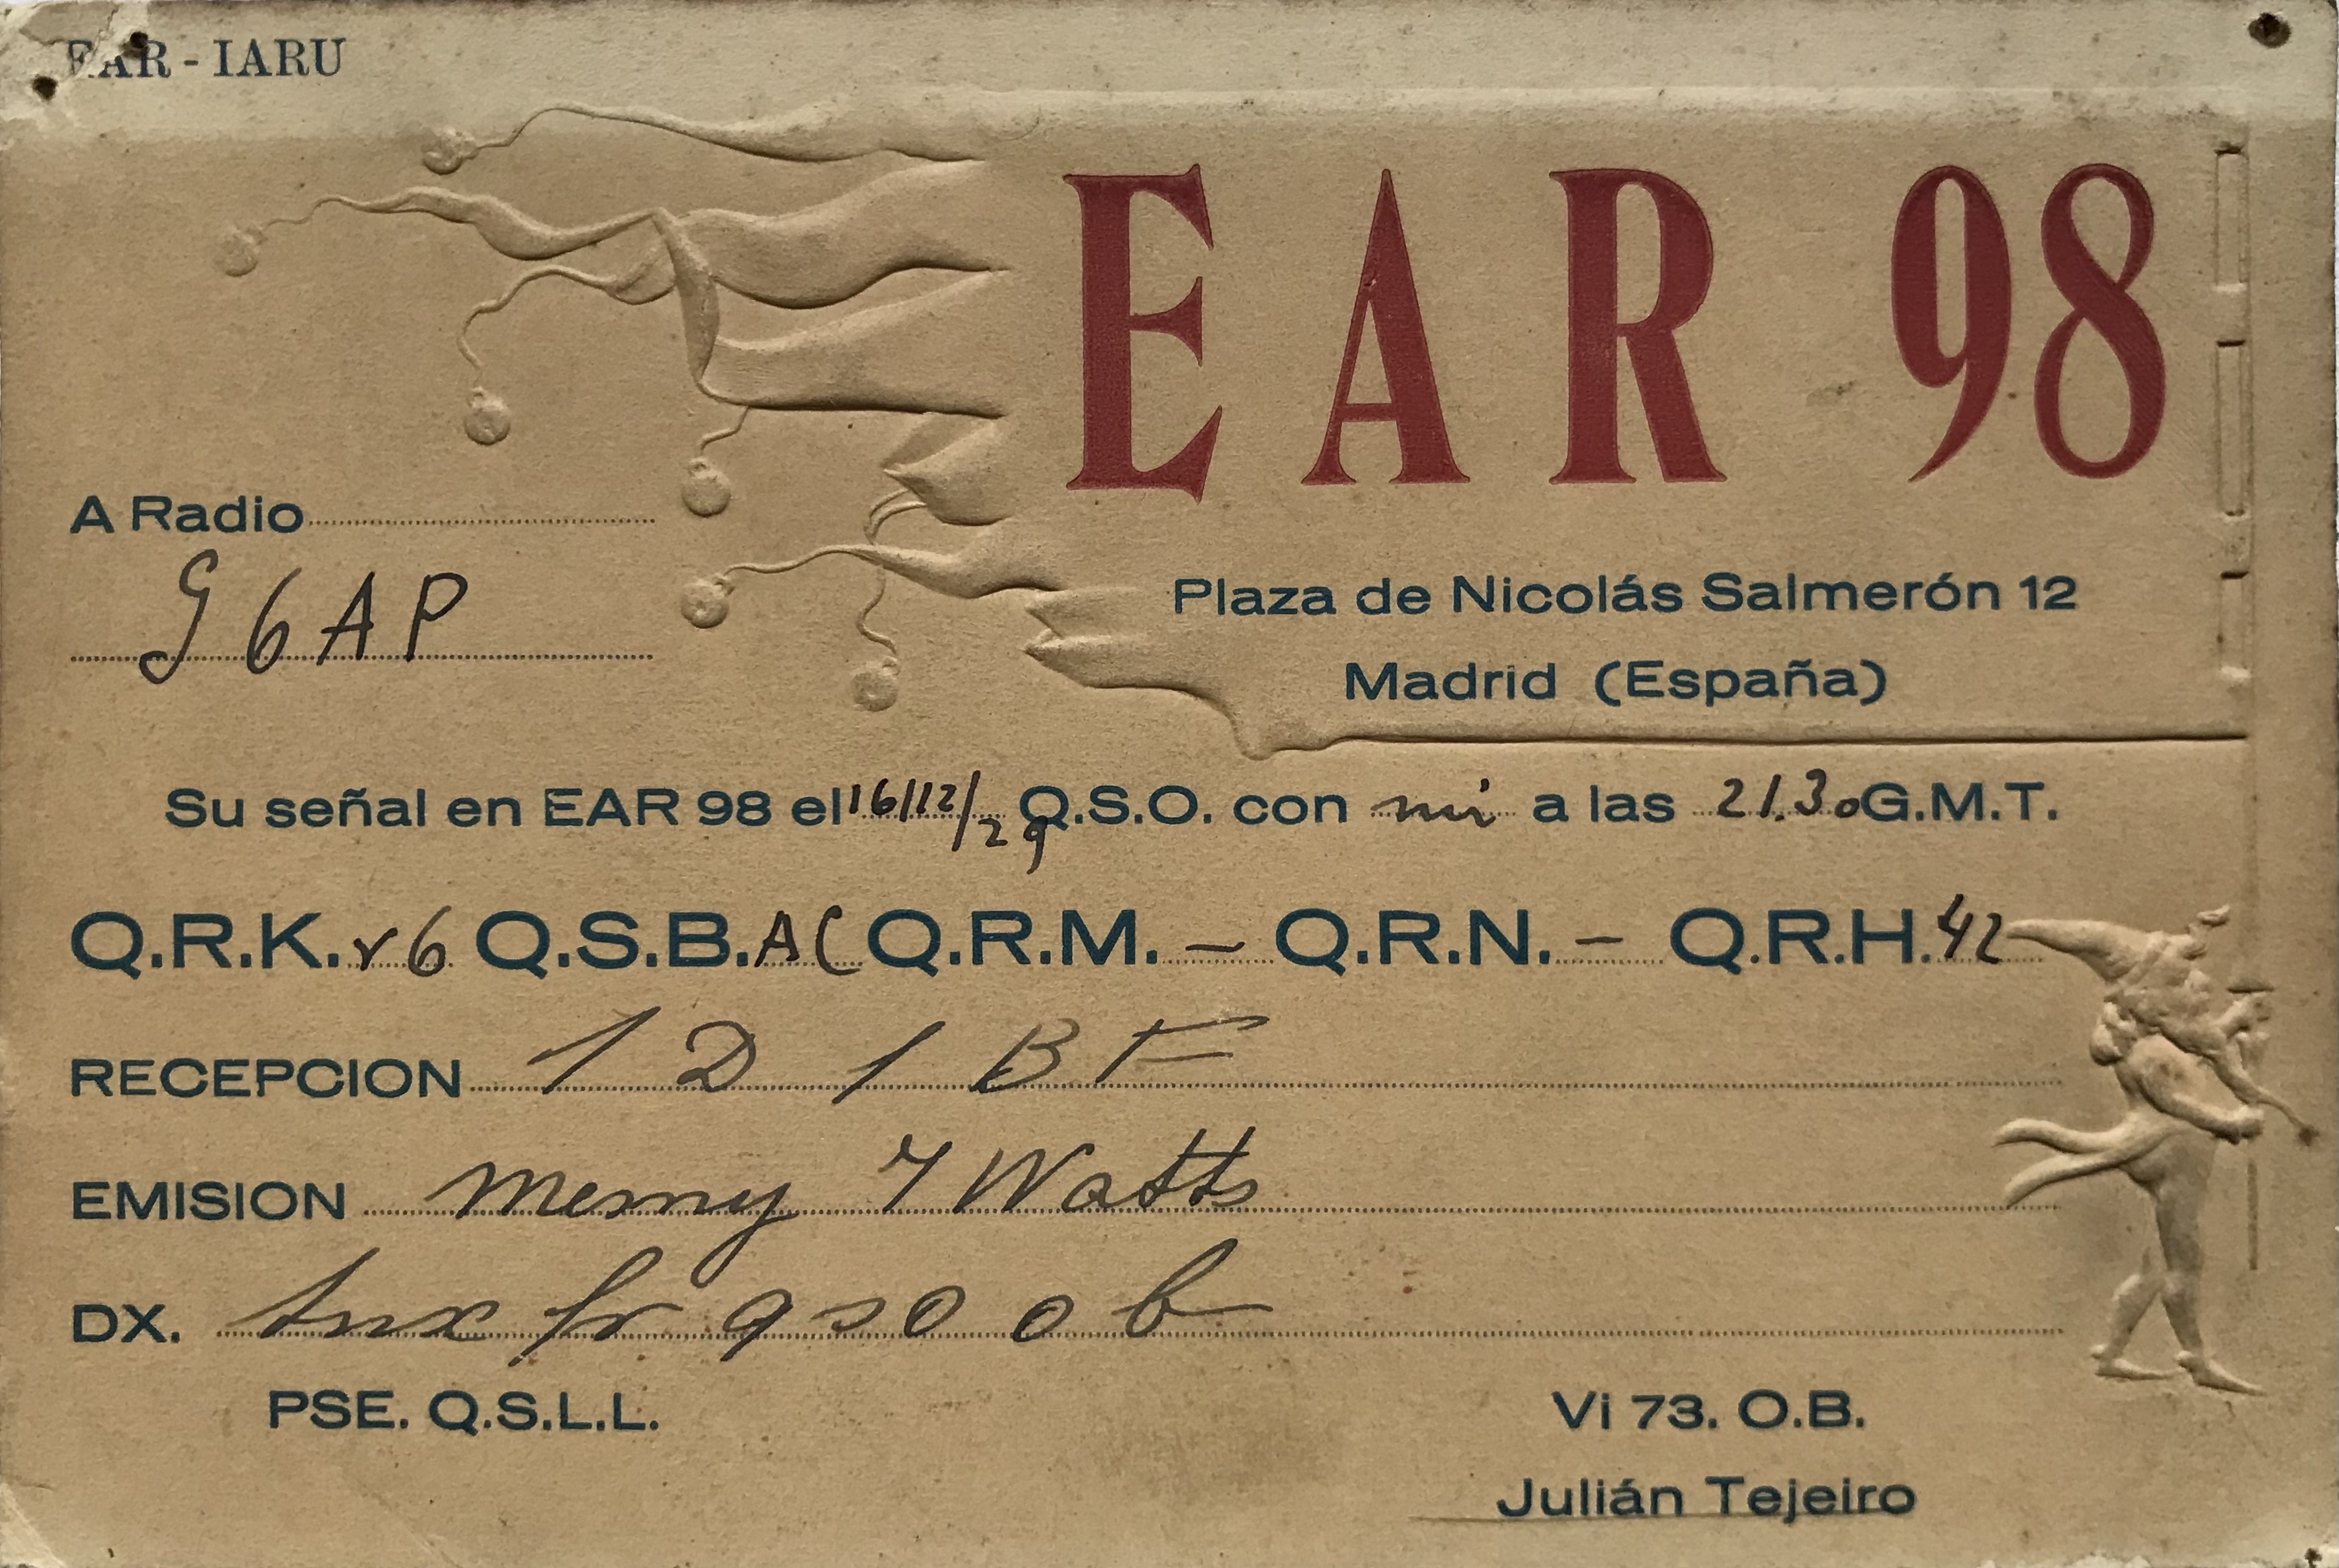 EAR - IARU
EAR 98
A Radio
G6AP
Plaza de Nicolás Salmerón 12
Madrid (España)
Su señal en EAR 98 el 16/12/29 Q.S.O. con mi a las 21.30 G.M.T.
Q.R.K. r6 Q.S.B. AC Q.R.M. - Q.R.N. - Q.R.H. 42
RECEPCION 1 D 1 BF
EMISION Mesny 7 Watts
DX. tnx fr qso ob
PSE. Q.S.L.L.
Vi 73. O.B.
Julián Tejeiro